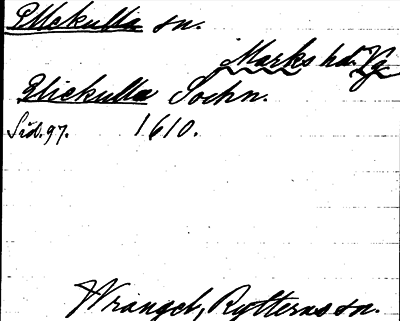 Öllekulla sn.
Marks hd. Vg.
Ellickulla Sochn.
Sid. 97. 1610.
Wrangel, Rytterns sn.